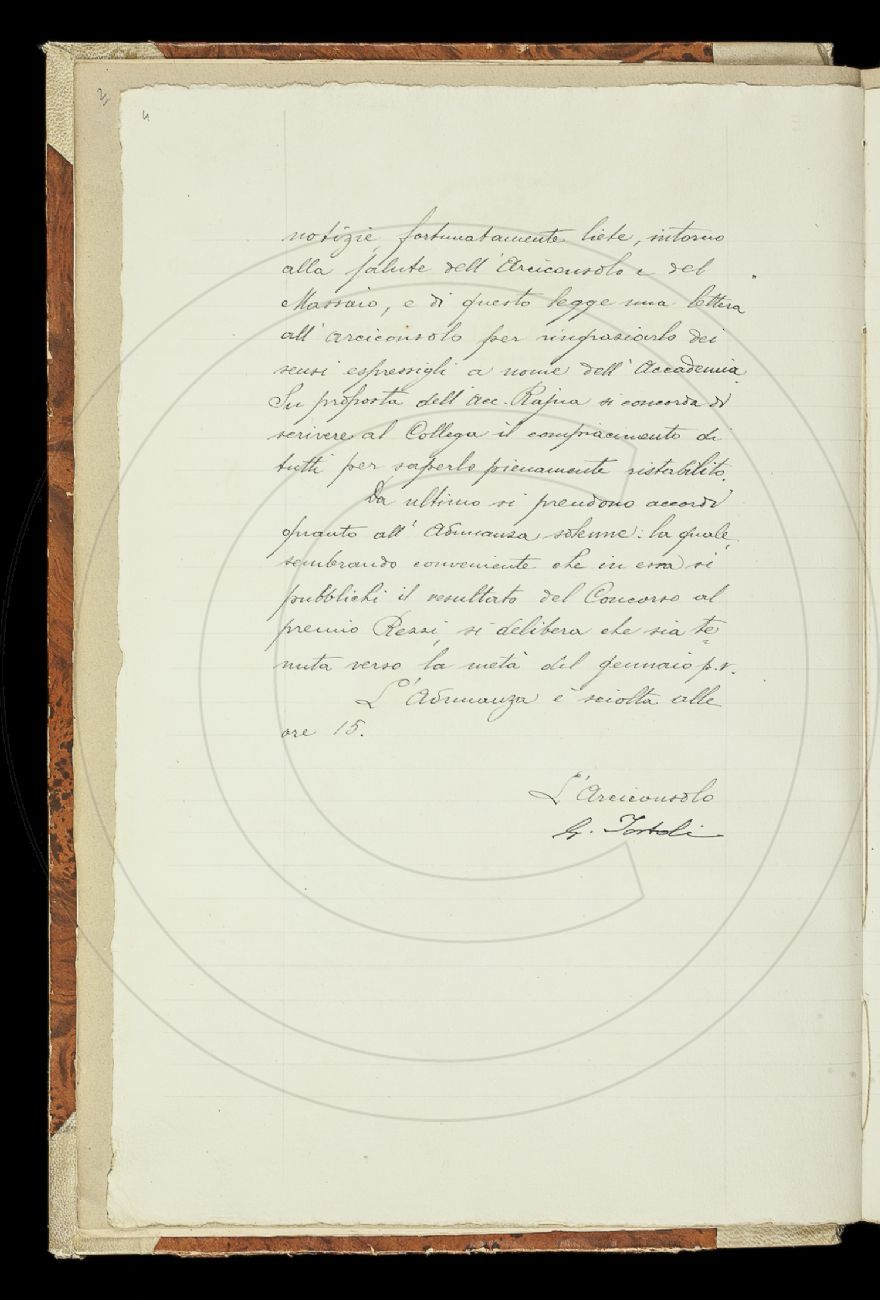 4
notizie, fortunatamente liete, intorno
alla salute dell'Arciconsolo e del
Massaio, e di questo legge una lettera
all'arciconsolo per ringraziarlo dei
sensi espressigli a nome dell'Accademia.
Su proposta dell'Acc. Rajna si concorda di
scrivere al Collega il compiacimento di
tutti per saperlo pienamente ristabilito.
Da ultimo si prendono accordi
quanto all'Adunanza solenne: la quale,
sembrando conveniente che in essa si
pubblichi il resultato del Concorso al
premio Rezzi, si delibera che sia te=
nuta verso la metà del gennaio p.v.
L'Adunanza è sciolta alle
ore 15.
L'Arciconsolo
G. Tortoli